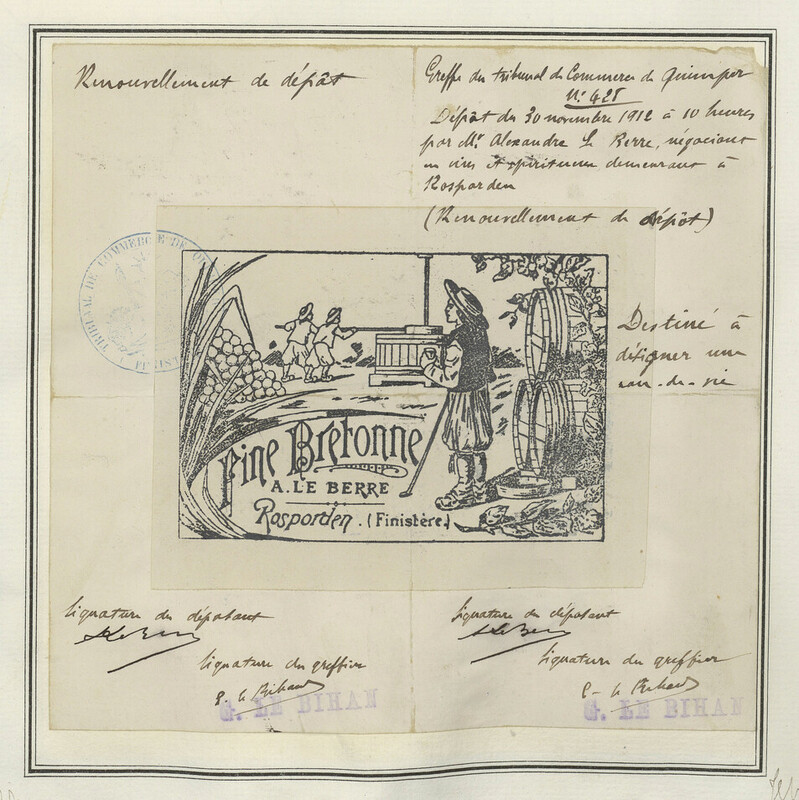 Renouvellement de dépôt
Greffe du tribunal de Commerce de Quimper
N° 428
Dépôt du 30 novembre 1912 à 10 heures
par Mr Alexandre Le Berre, négociant
en vins et spiritueux demeurant à
Rosporden
(Renouvellement de dépôt)
TRIBUNAL DE COMMERCE DE
Destiné à
désigner une
eau-de-vie
Fine Bretonne
A. LE BERRE
Rosporden. (Finistère)
Signature du déposant
A Le Berre
Signature du greffier
G. Le Bihan
G. LE BIHAN
Signature du déposant
A Le Berre
Signature du greffier
G. Le Bihan
G. LE BIHAN